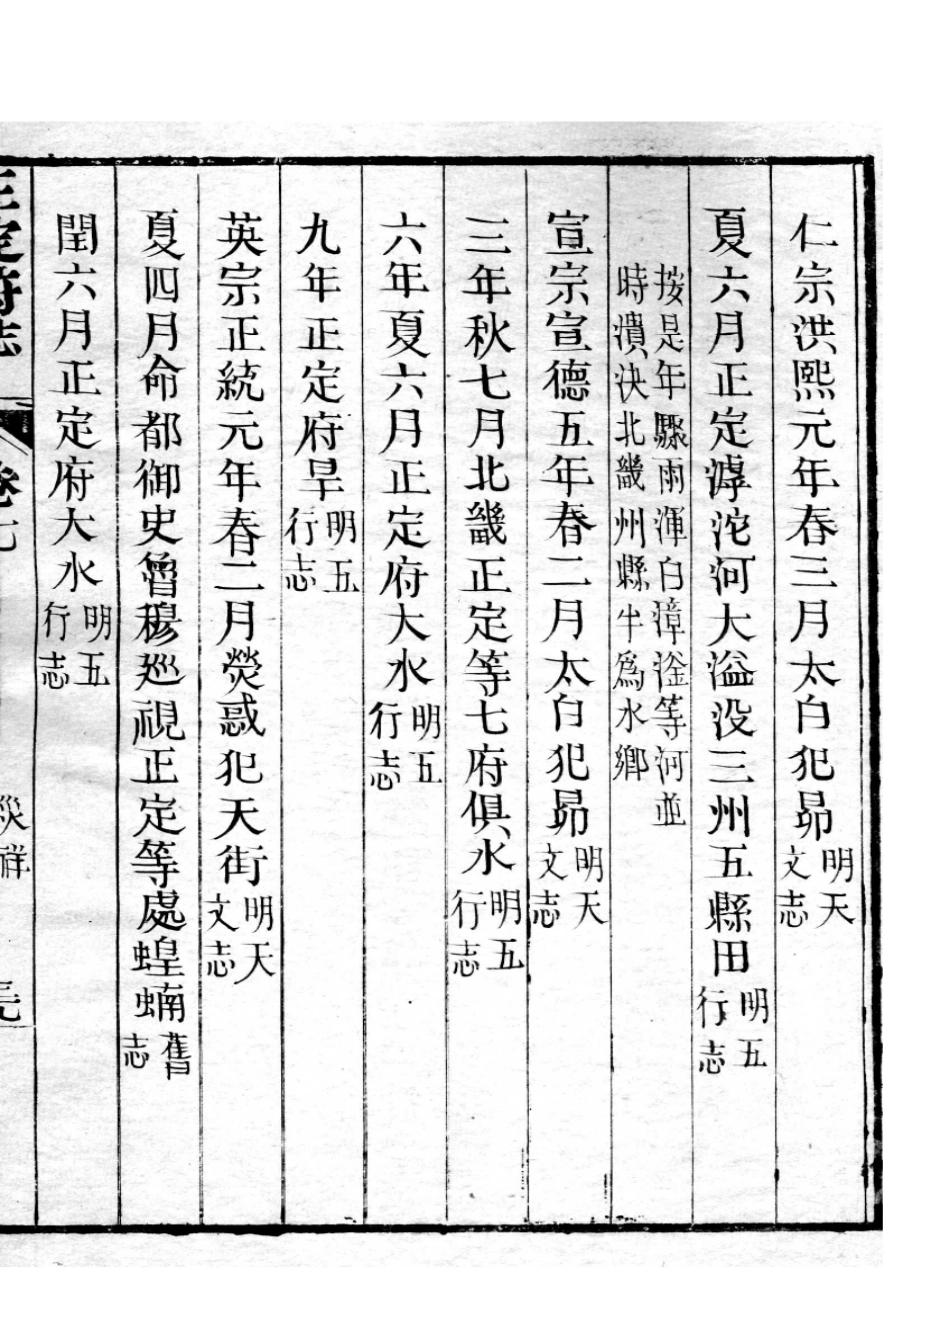 仁宗洪熙元年春三月太白犯昴明天文志
夏六月正定滹沱河大溢没三州五縣田明五行志
按是年驟雨渾白漳滏等河並
時潰決北畿州縣半爲水鄉
宣宗宣德五年春二月太白犯昴明天文志
三年秋七月北畿正定等七府俱水明五行志
六年夏六月正定府大水明五行志
九年正定府旱明五行志
英宗正統元年春二月熒惑犯天街明天文志
夏四月命都御史曾穆廵視正定等處蝗蝻舊志
閏六月正定府大水明五行志
正定府志 卷七 災祥